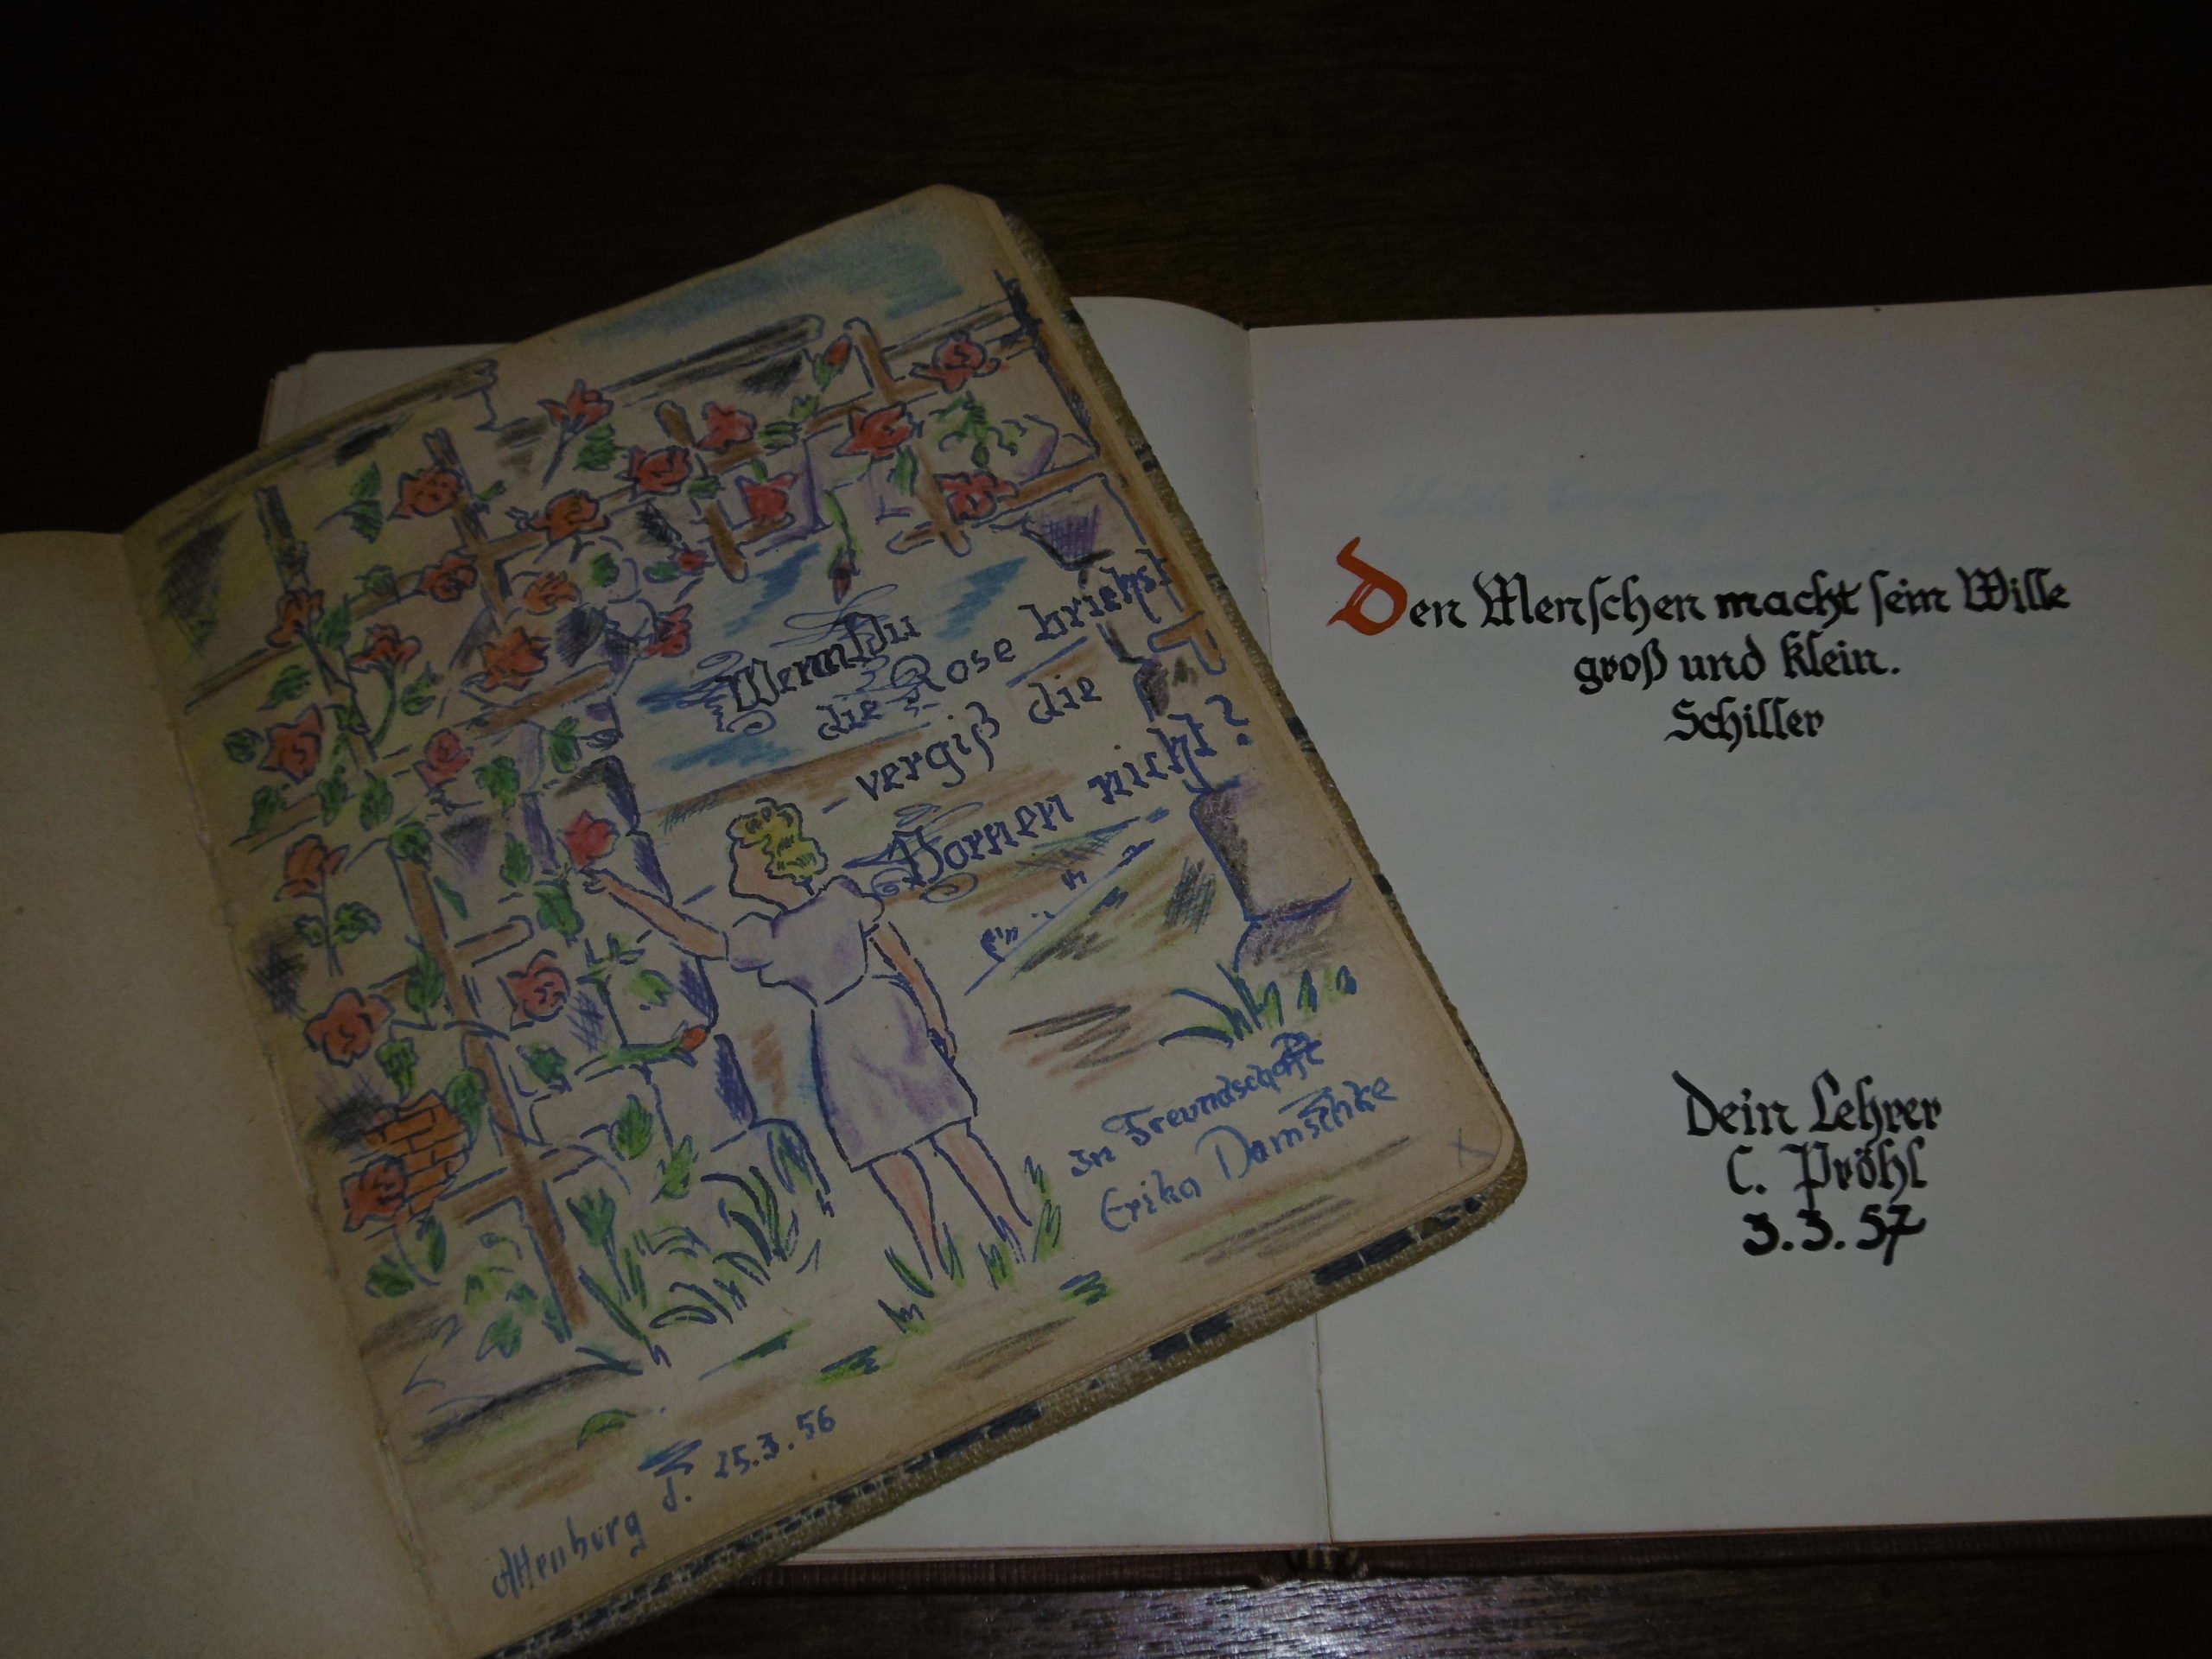 Wenn Du
die Rose brichst
vergiß die
Dornen nicht?
In Freundschaft
Erika Damschke
Altenburg d. 25.3.56
Den Menschen macht sein Wille
groß und klein.
Schiller
Dein Lehrer
C. Pröhl
3.3.57